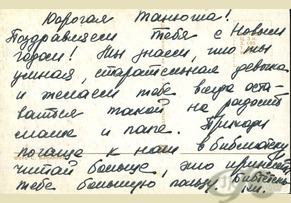 Дорогая Танюша!
Поздравляем тебя с Новым
годом! Мы знаем, что ты
умная, старательная девочка
и желаем тебе всегда оста-
ваться такой на радость
маме и папе. Приходи
почаще к нам в библиотеку
читай больше, это принесёт
тебе большую пользу. Библ